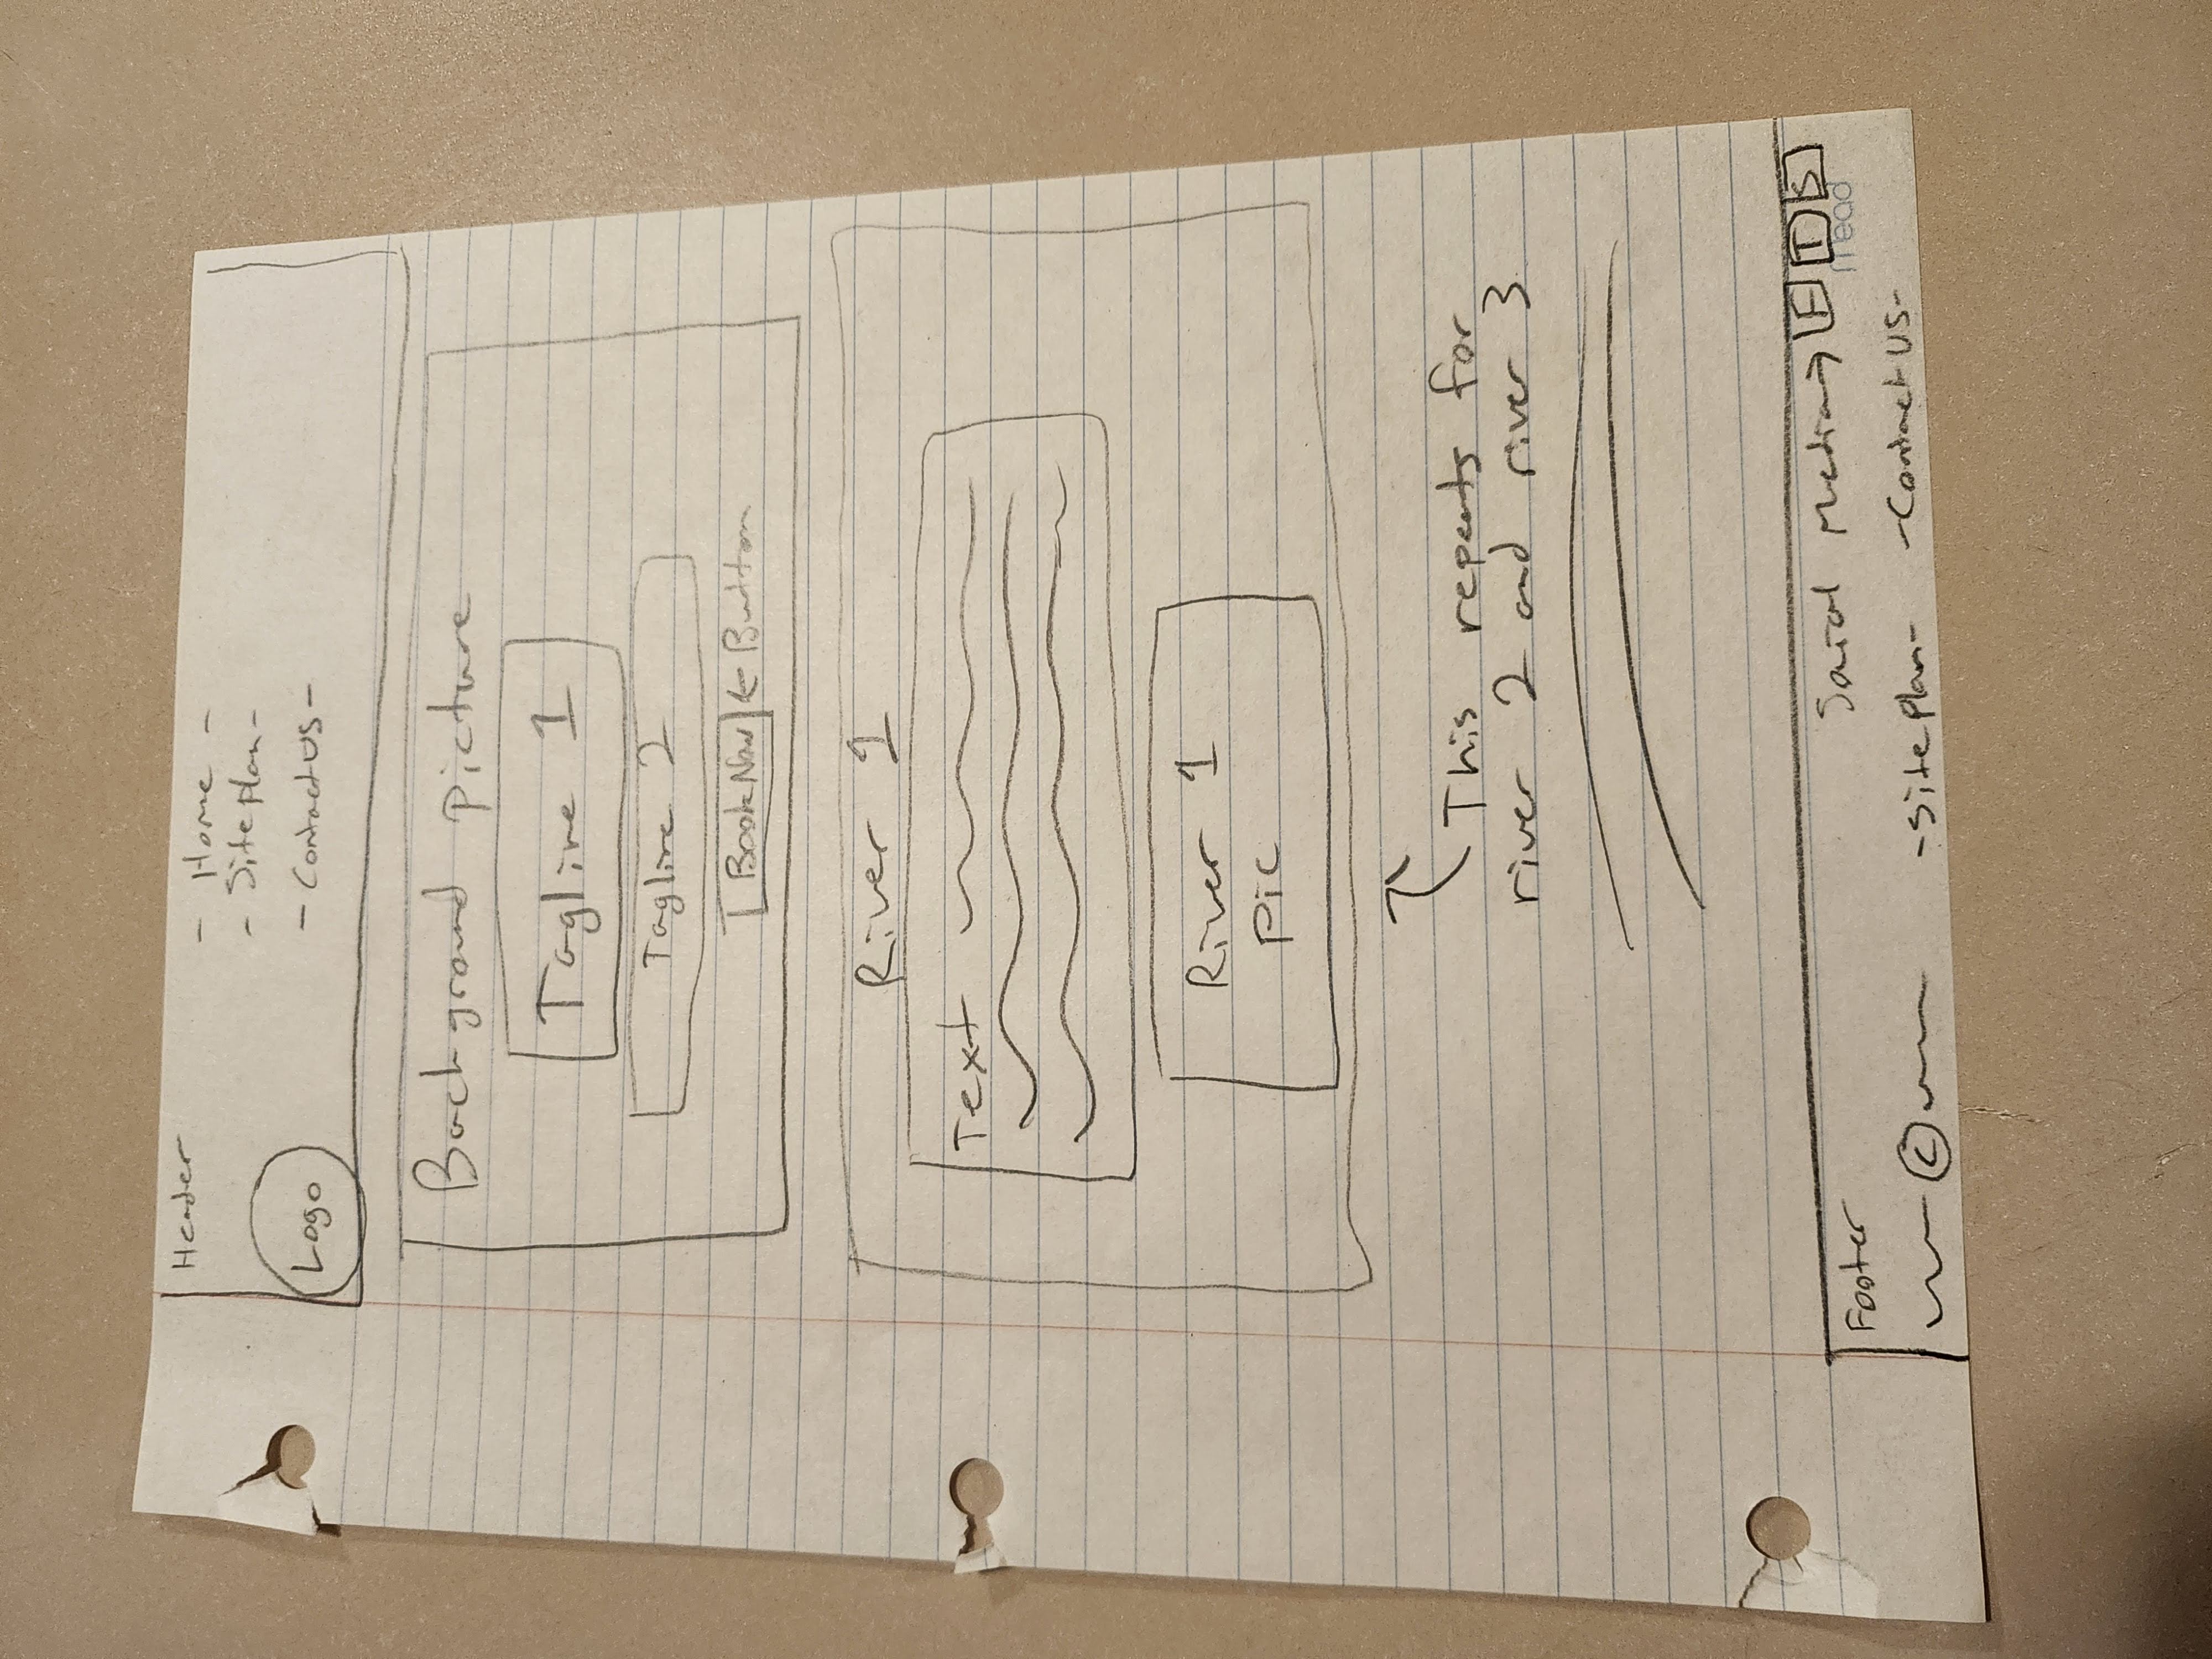 Header
- Home -
- Site Plan -
Logo
- Contact US -
Background picture
Tagline 1
Tagline 2
Book Now ← Button
River 1
Text
River 1
Pic
This repeats for
river 2 and river 3
Social Media → F I S
mead
Footer
© -Site Plan- -Contact US-